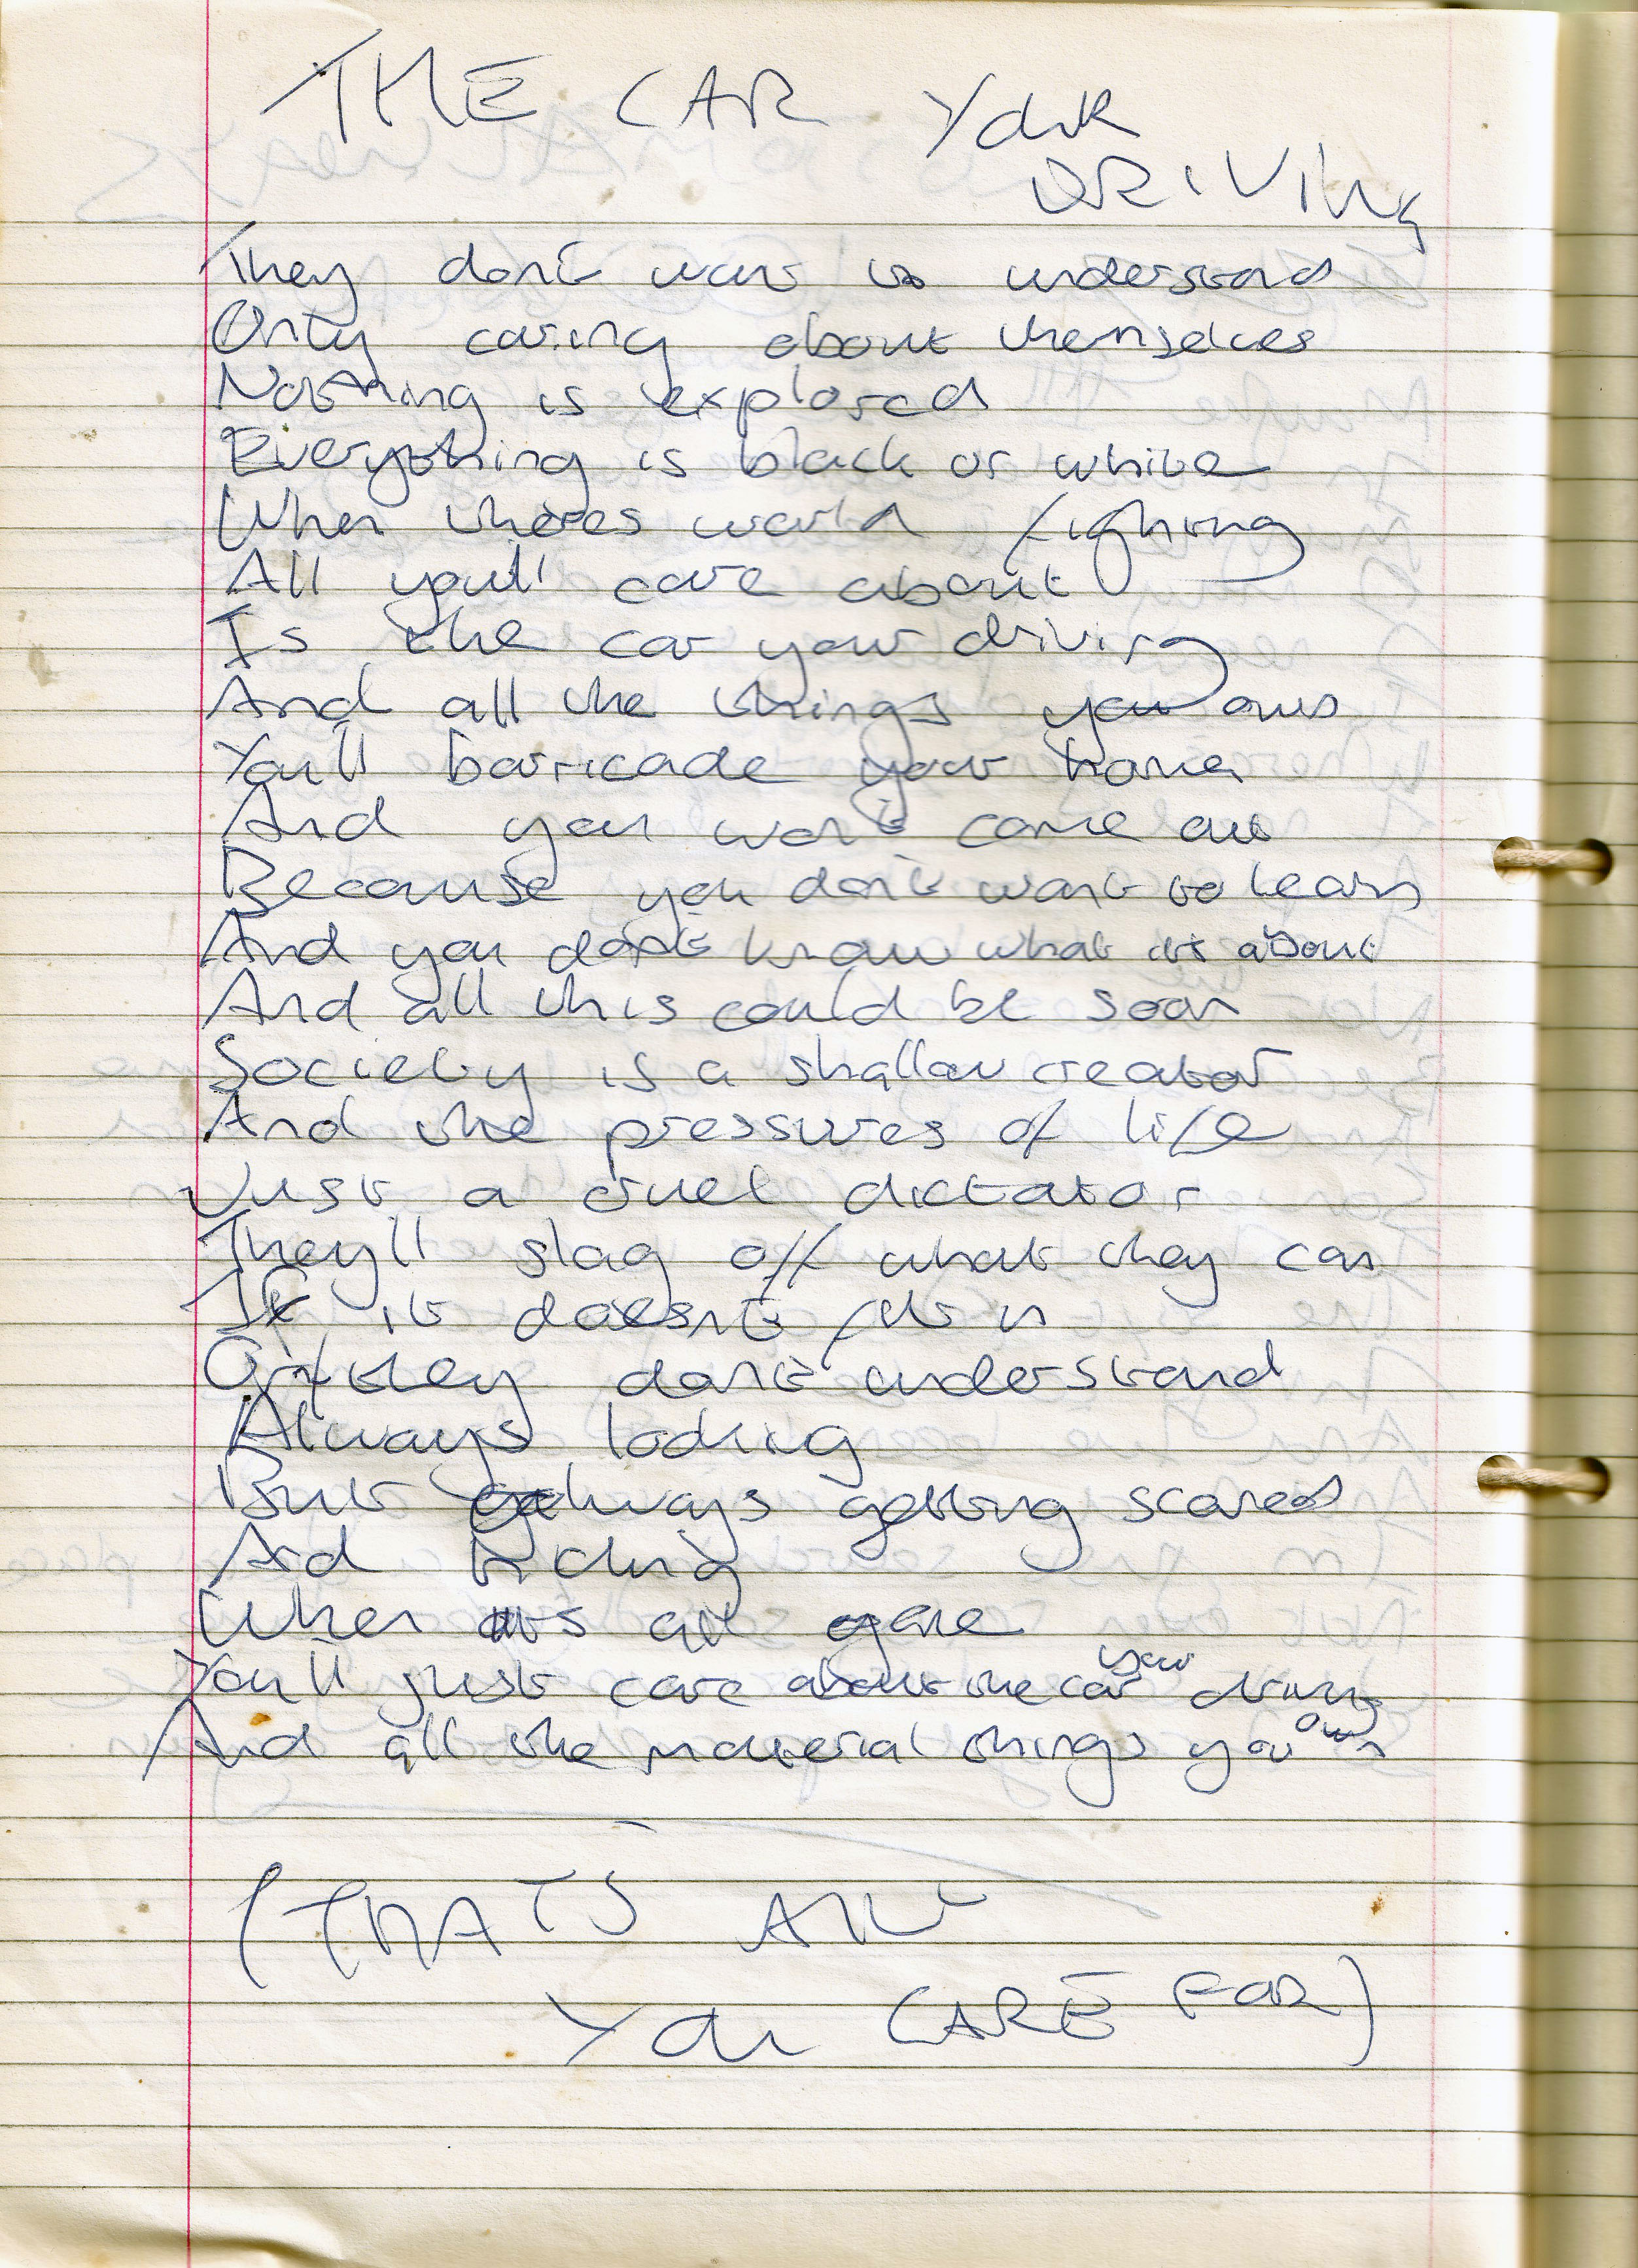 THE CAR YOUR
DRIVING
They don't want to understand
Only caring about themselves
Nothing is explored
Everything is black or white
When theres world fighting
All you'll care about
Is the car your driving
And all the things you own
You'll barricade your home
And you won't come out
Because you don't want to learn
And you don't know what its about
And all this could be soon
Society is a shallow creator
And the pressures of life
Just a cruel dictator
They'll slag off what they can
If it doesn't fit in
Or they don't understand
Always looking
But always getting scared
And hiding
When its all gone
You'll just care about the car your driving
And all the material things you own
(THATS ALL
YOU CARE FOR)